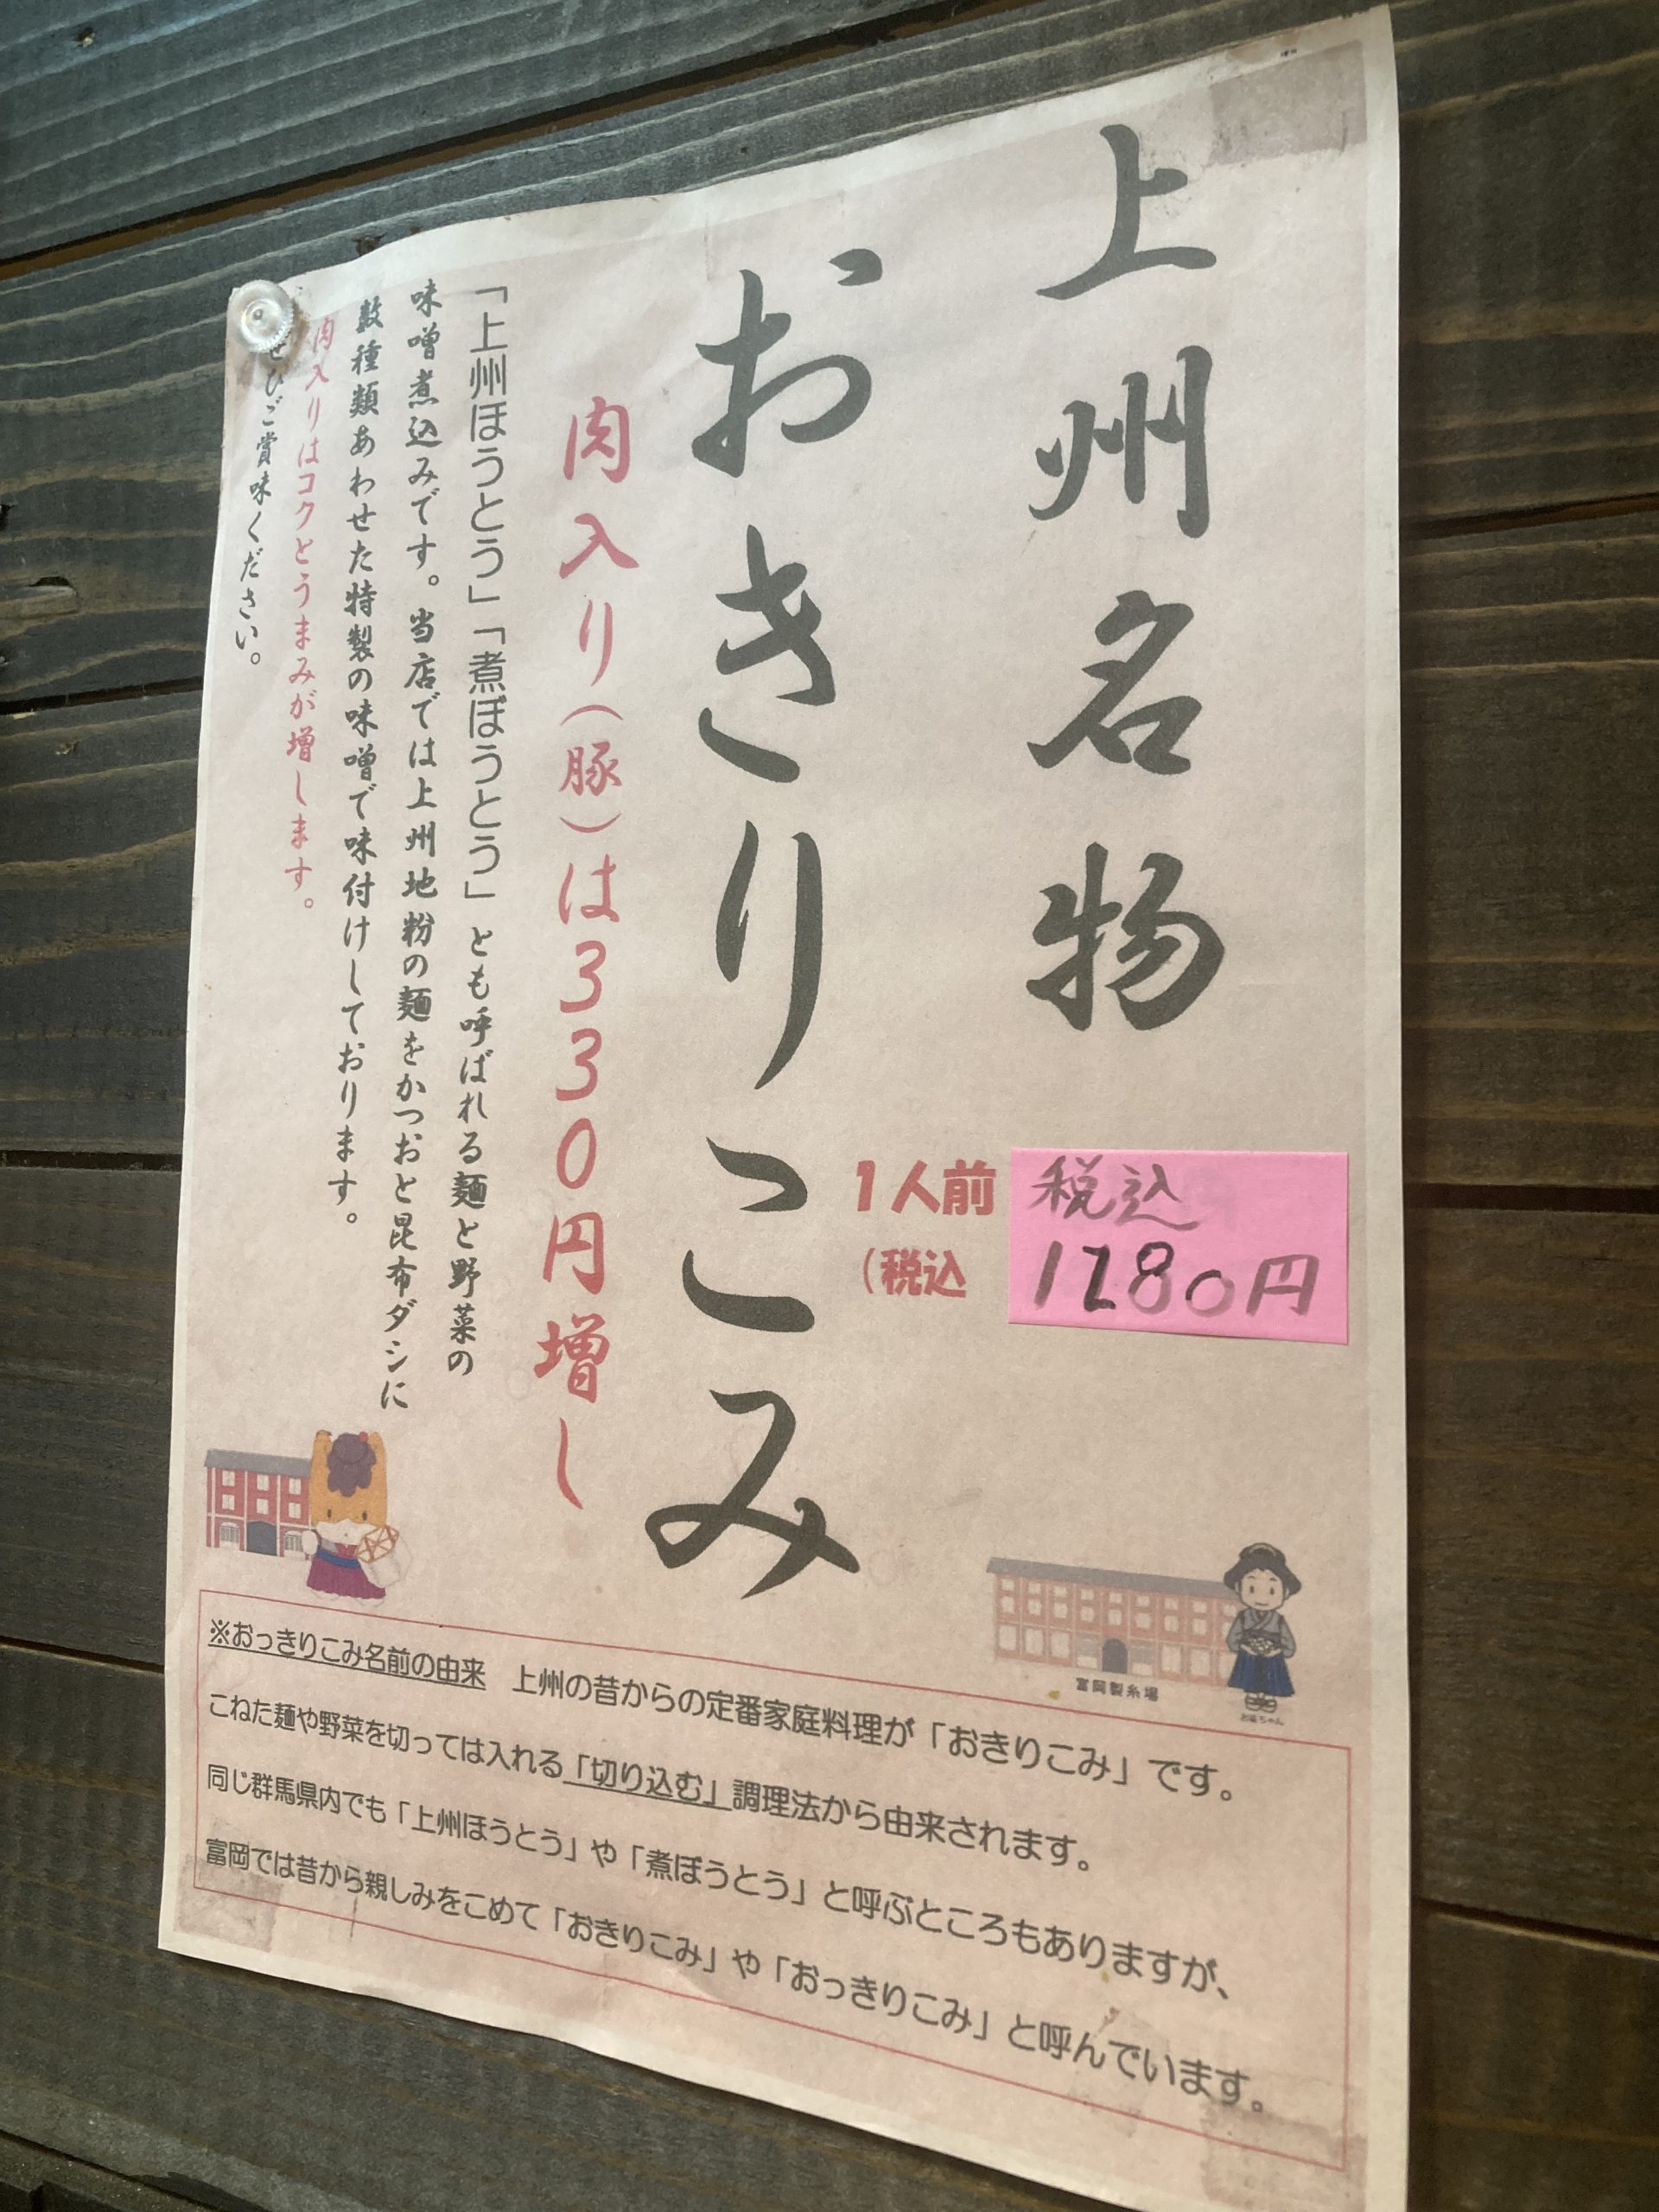 上州名物
おきりこみ
1人前
(税込
税込
1280円
肉入り(豚)は330円増し
「上州ほうとう」「煮ぼうとう」とも呼ばれる麺と野菜の
味噌煮込みです。当店では上州地粉の麺をかつおと昆布ダシに
数種類あわせた特製の味噌で味付けしております。
肉入りはコクとうまみが増します。
ぜひご賞味ください。
富岡製糸場
お富ちゃん
※おっきりこみ名前の由来 上州の昔からの定番家庭料理が「おきりこみ」です。
こねた麺や野菜を切っては入れる「切り込む」調理法から由来されます。
同じ群馬県内でも「上州ほうとう」や「煮ぼうとう」と呼ぶところもありますが、
富岡では昔から親しみをこめて「おきりこみ」や「おっきりこみ」と呼んでいます。